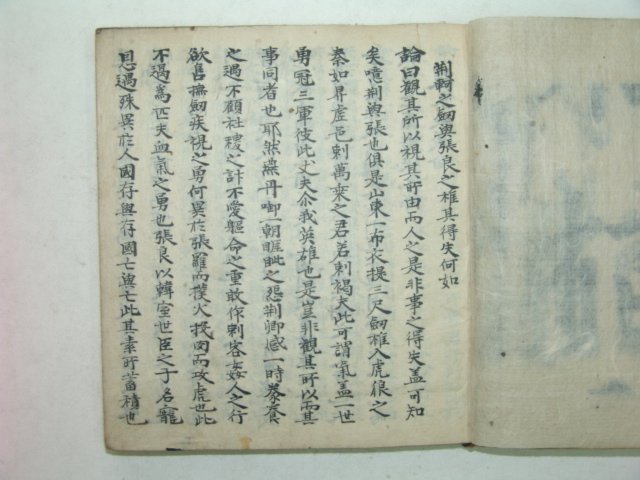 荊軻之劒與張良之椎其得失何如
論曰觀其所以視其所由兩人之是非事之得失盖可知
矣噫荊與張也俱是山東一布衣提三尺劒椎入虎狼之
秦如昇虛邑刺萬乘之君若刺褐夫此可謂氣盖一世
勇冠三軍彼此丈夫尒我英雄也是豈非觀其所以而其
事同者也耶然燕丹啣一朝睚眦之怨荊卿感一時豢養
之遇不顧社稷之計不愛軀命之重敢作刺客姦人之行
欲售撫劒疾視之勇何異於張羅而撲火肉而攻虎也此
不過爲匹夫血氣之勇也張良以韓室世臣之子名寵
恩遇殊異於人國存與存國亡與亡此其素所蓄積也